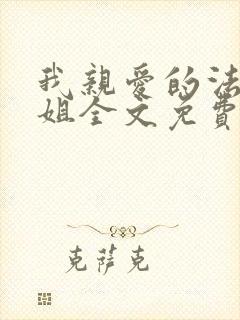 我親愛的法
姐全文免費
克蕯克